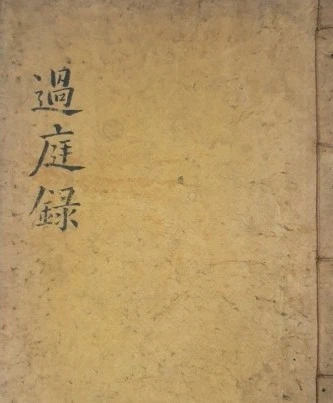 過庭録